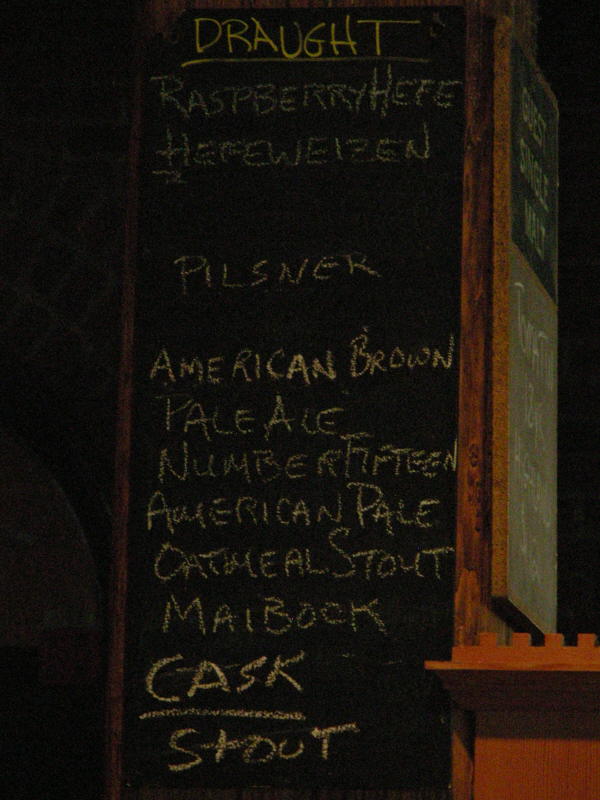 DRAUGHT
RASPBERRY HEFE
HEFEWEIZEN
PILSNER
AMERICAN BROWN
PALE ALE
NUMBER FIFTEEN
AMERICAN PALE
OATMEAL STOUT
MAIBOCK
CASK
STOUT
GUEST
SINGLE
MALT